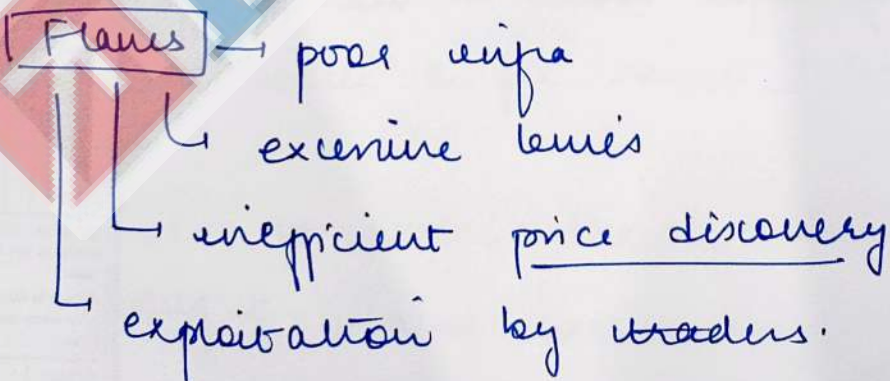 Flaws → poor infra
→ excessive levies
→ inefficient price discovery
→ exploitation by traders.